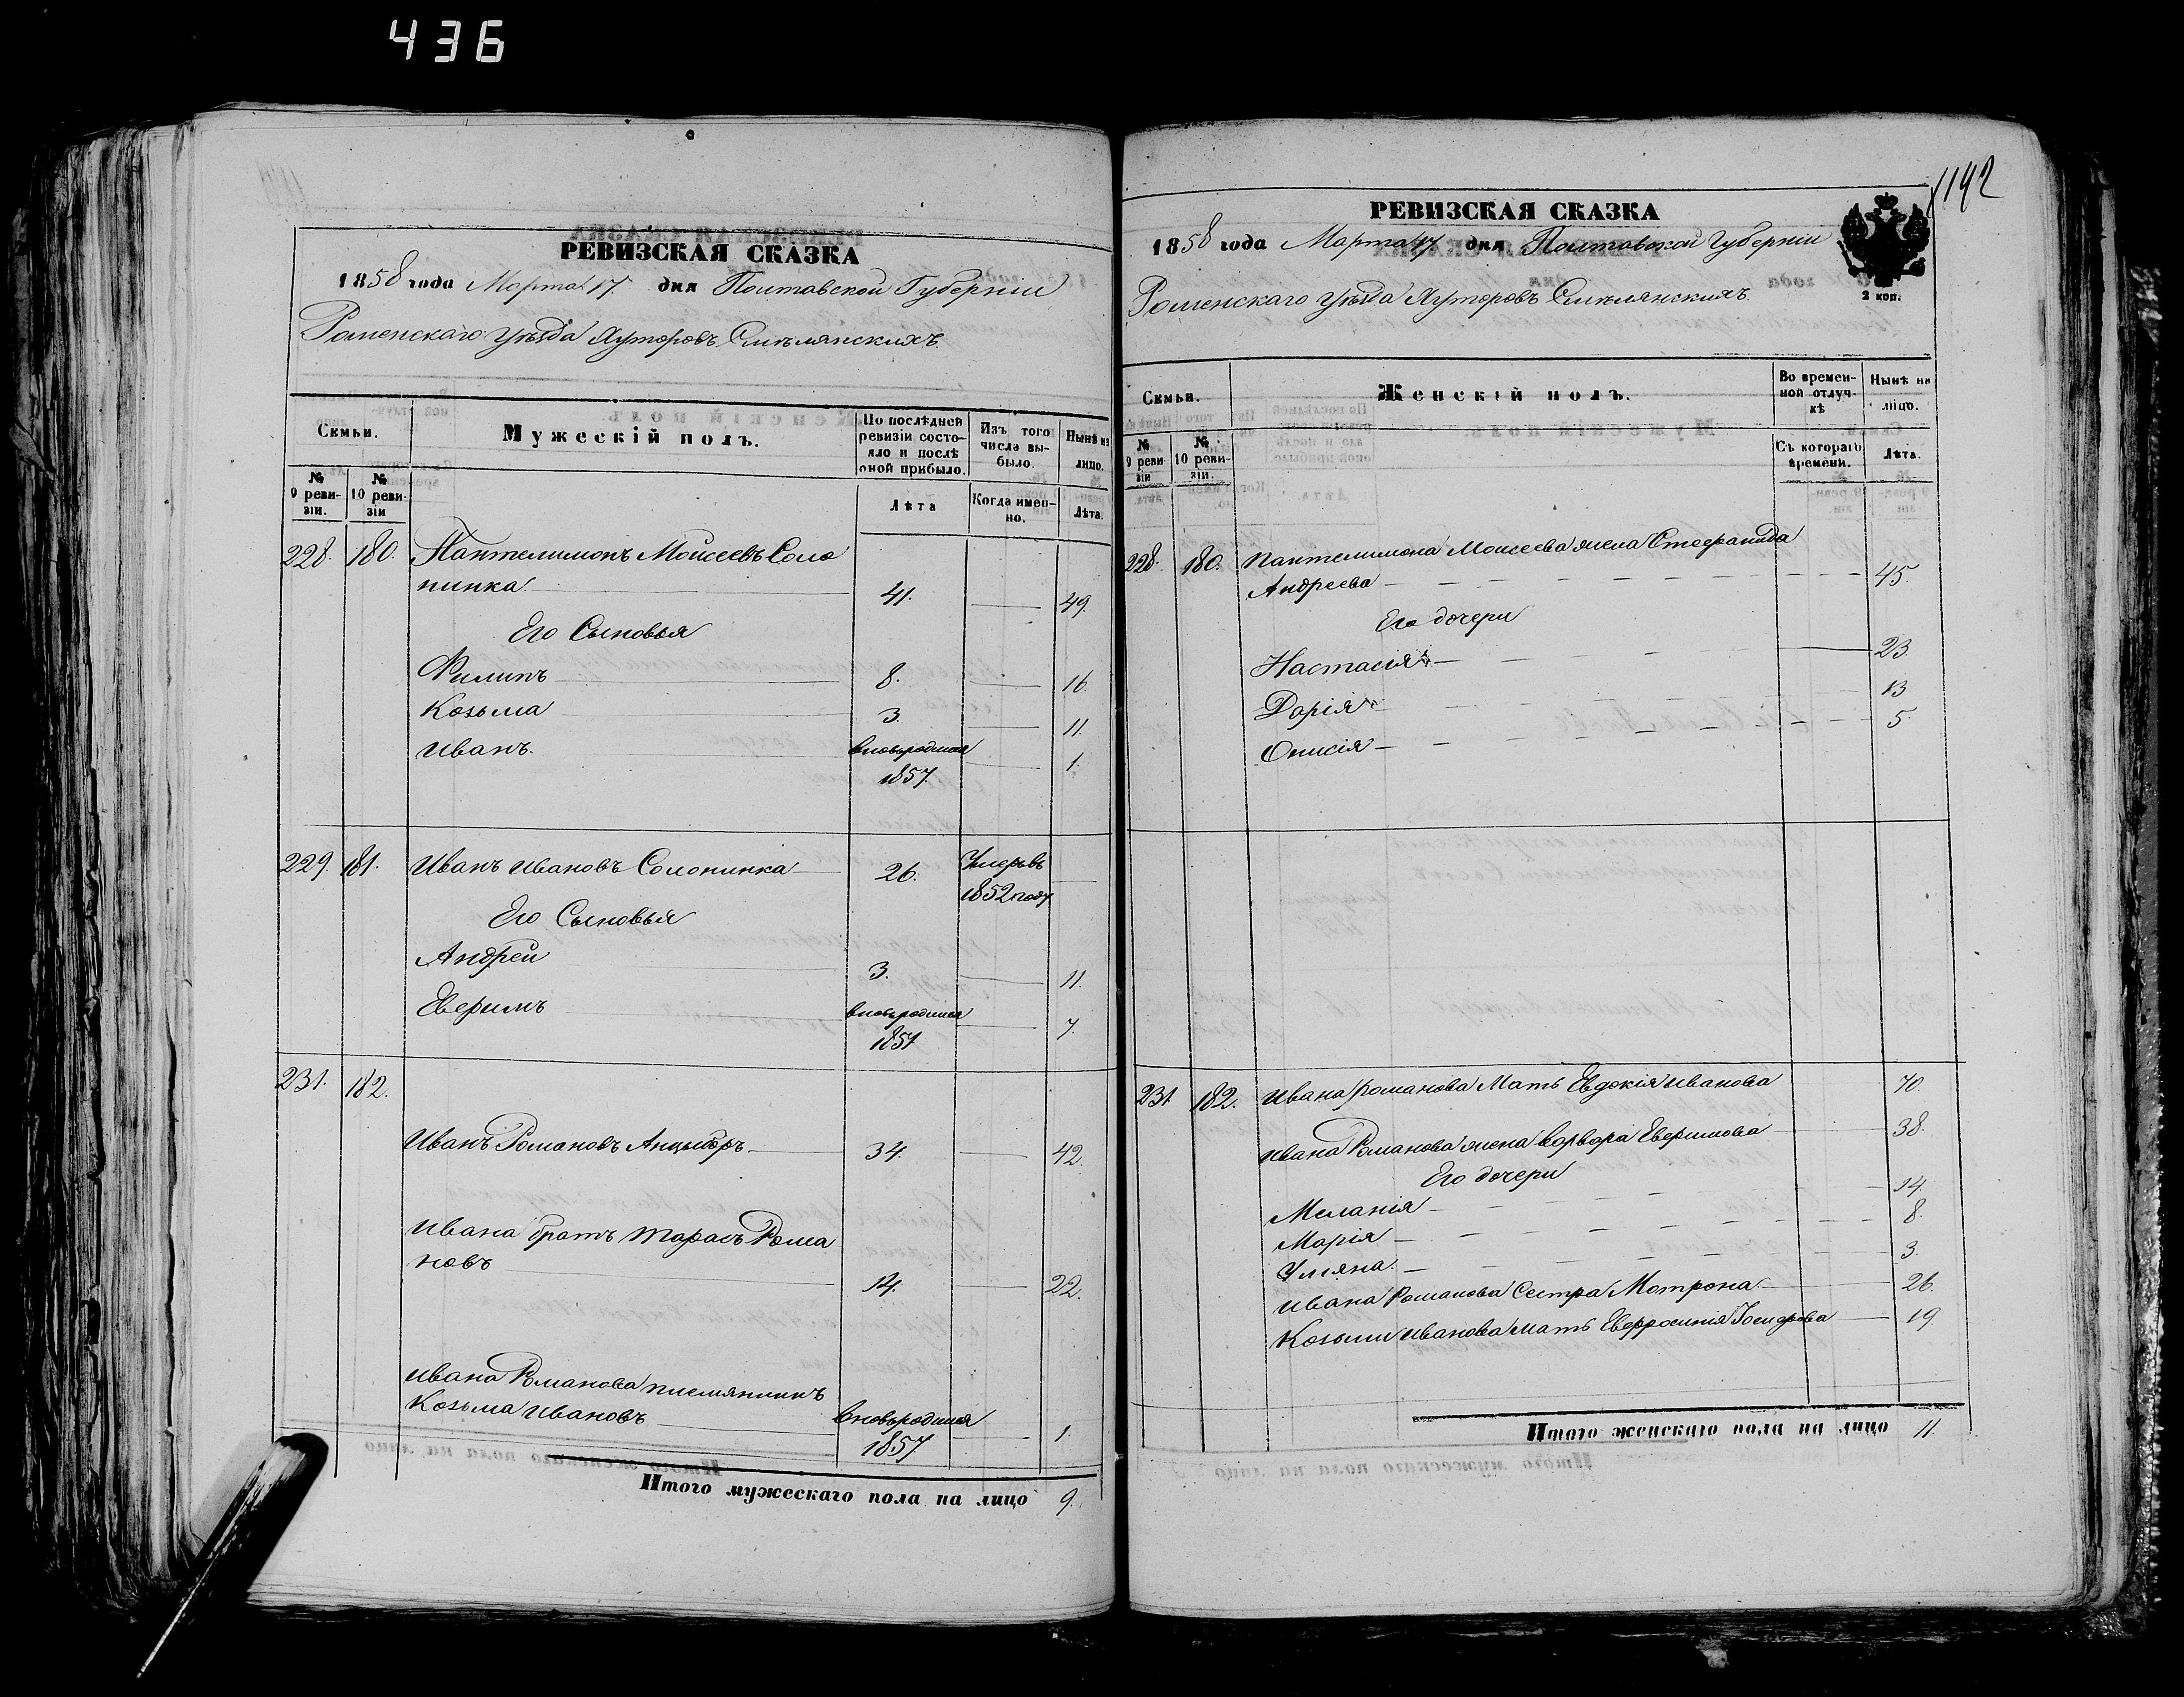 436
РЕВИЗСКАЯ СКАЗКА
1858 года Марта 17. дня Полтавской Губерніи
Роменскаго уѣзда Хуторовъ Смѣлянскихъ.
Семьи.
Мужескій полъ.
По послѣдней ревизіи состояло и послѣ оной прибыло.
Изъ того числа выбыло.
Нынѣ на лицо.
№ 9 ревизіи.
№ 10 ревизіи
Лѣта
Когда именно.
Лѣта.
228. 180. Пантелимонъ Моисеевъ Соло
пинка. 41. 49.
Его Сыновья
Филипъ 8. 16.
Козьма 3. 11.
Иванъ. вновьродился 1.
1857.
229. 181. Иванъ Ивановъ Солопинка 26. Умеръ въ
1852 году
Его Сыновья
Андрей 3. 11.
Евфимъ вновьродился 7.
1851
231. 182.
Иванъ Романовъ Анцыборъ 34. 42.
Ивана братъ Тарасъ Рома
новъ 14. 22.
Ивана Романова племянникъ
Козьма Ивановъ вновьродился 1.
1857
Итого мужескаго пола на лицо 9.
1142
РЕВИЗСКАЯ СКАЗКА
1858 года Марта 17 дня Полтавской Губерніи
2 коп.
Роменскаго уѣзда Хуторовъ Смѣлянскихъ.
Семьи.
Женскій полъ.
Во временной отлучкѣ
Нынѣ на лицо.
№ 9 ревизіи
№ 10 ревизіи.
Съ котораго времени.
Лѣта.
228. 180. Пантелимона Моисеева жена Стефанида
Андреева 45.
Его дочери
Настасія 23.
Дарія 13
Описія 5.
231 182. Ивана Романова Мать Евдокія Иванова 70.
Ивана Романова жена Варвара Евфимова 38.
Его дочери
Меланія 14.
Марія 8.
Уляна. 3.
Ивана Романова Сестра Мотрона 26.
Козьмы Иванова мать Евфросинія 19
Итого женскаго пола на лицо 11.